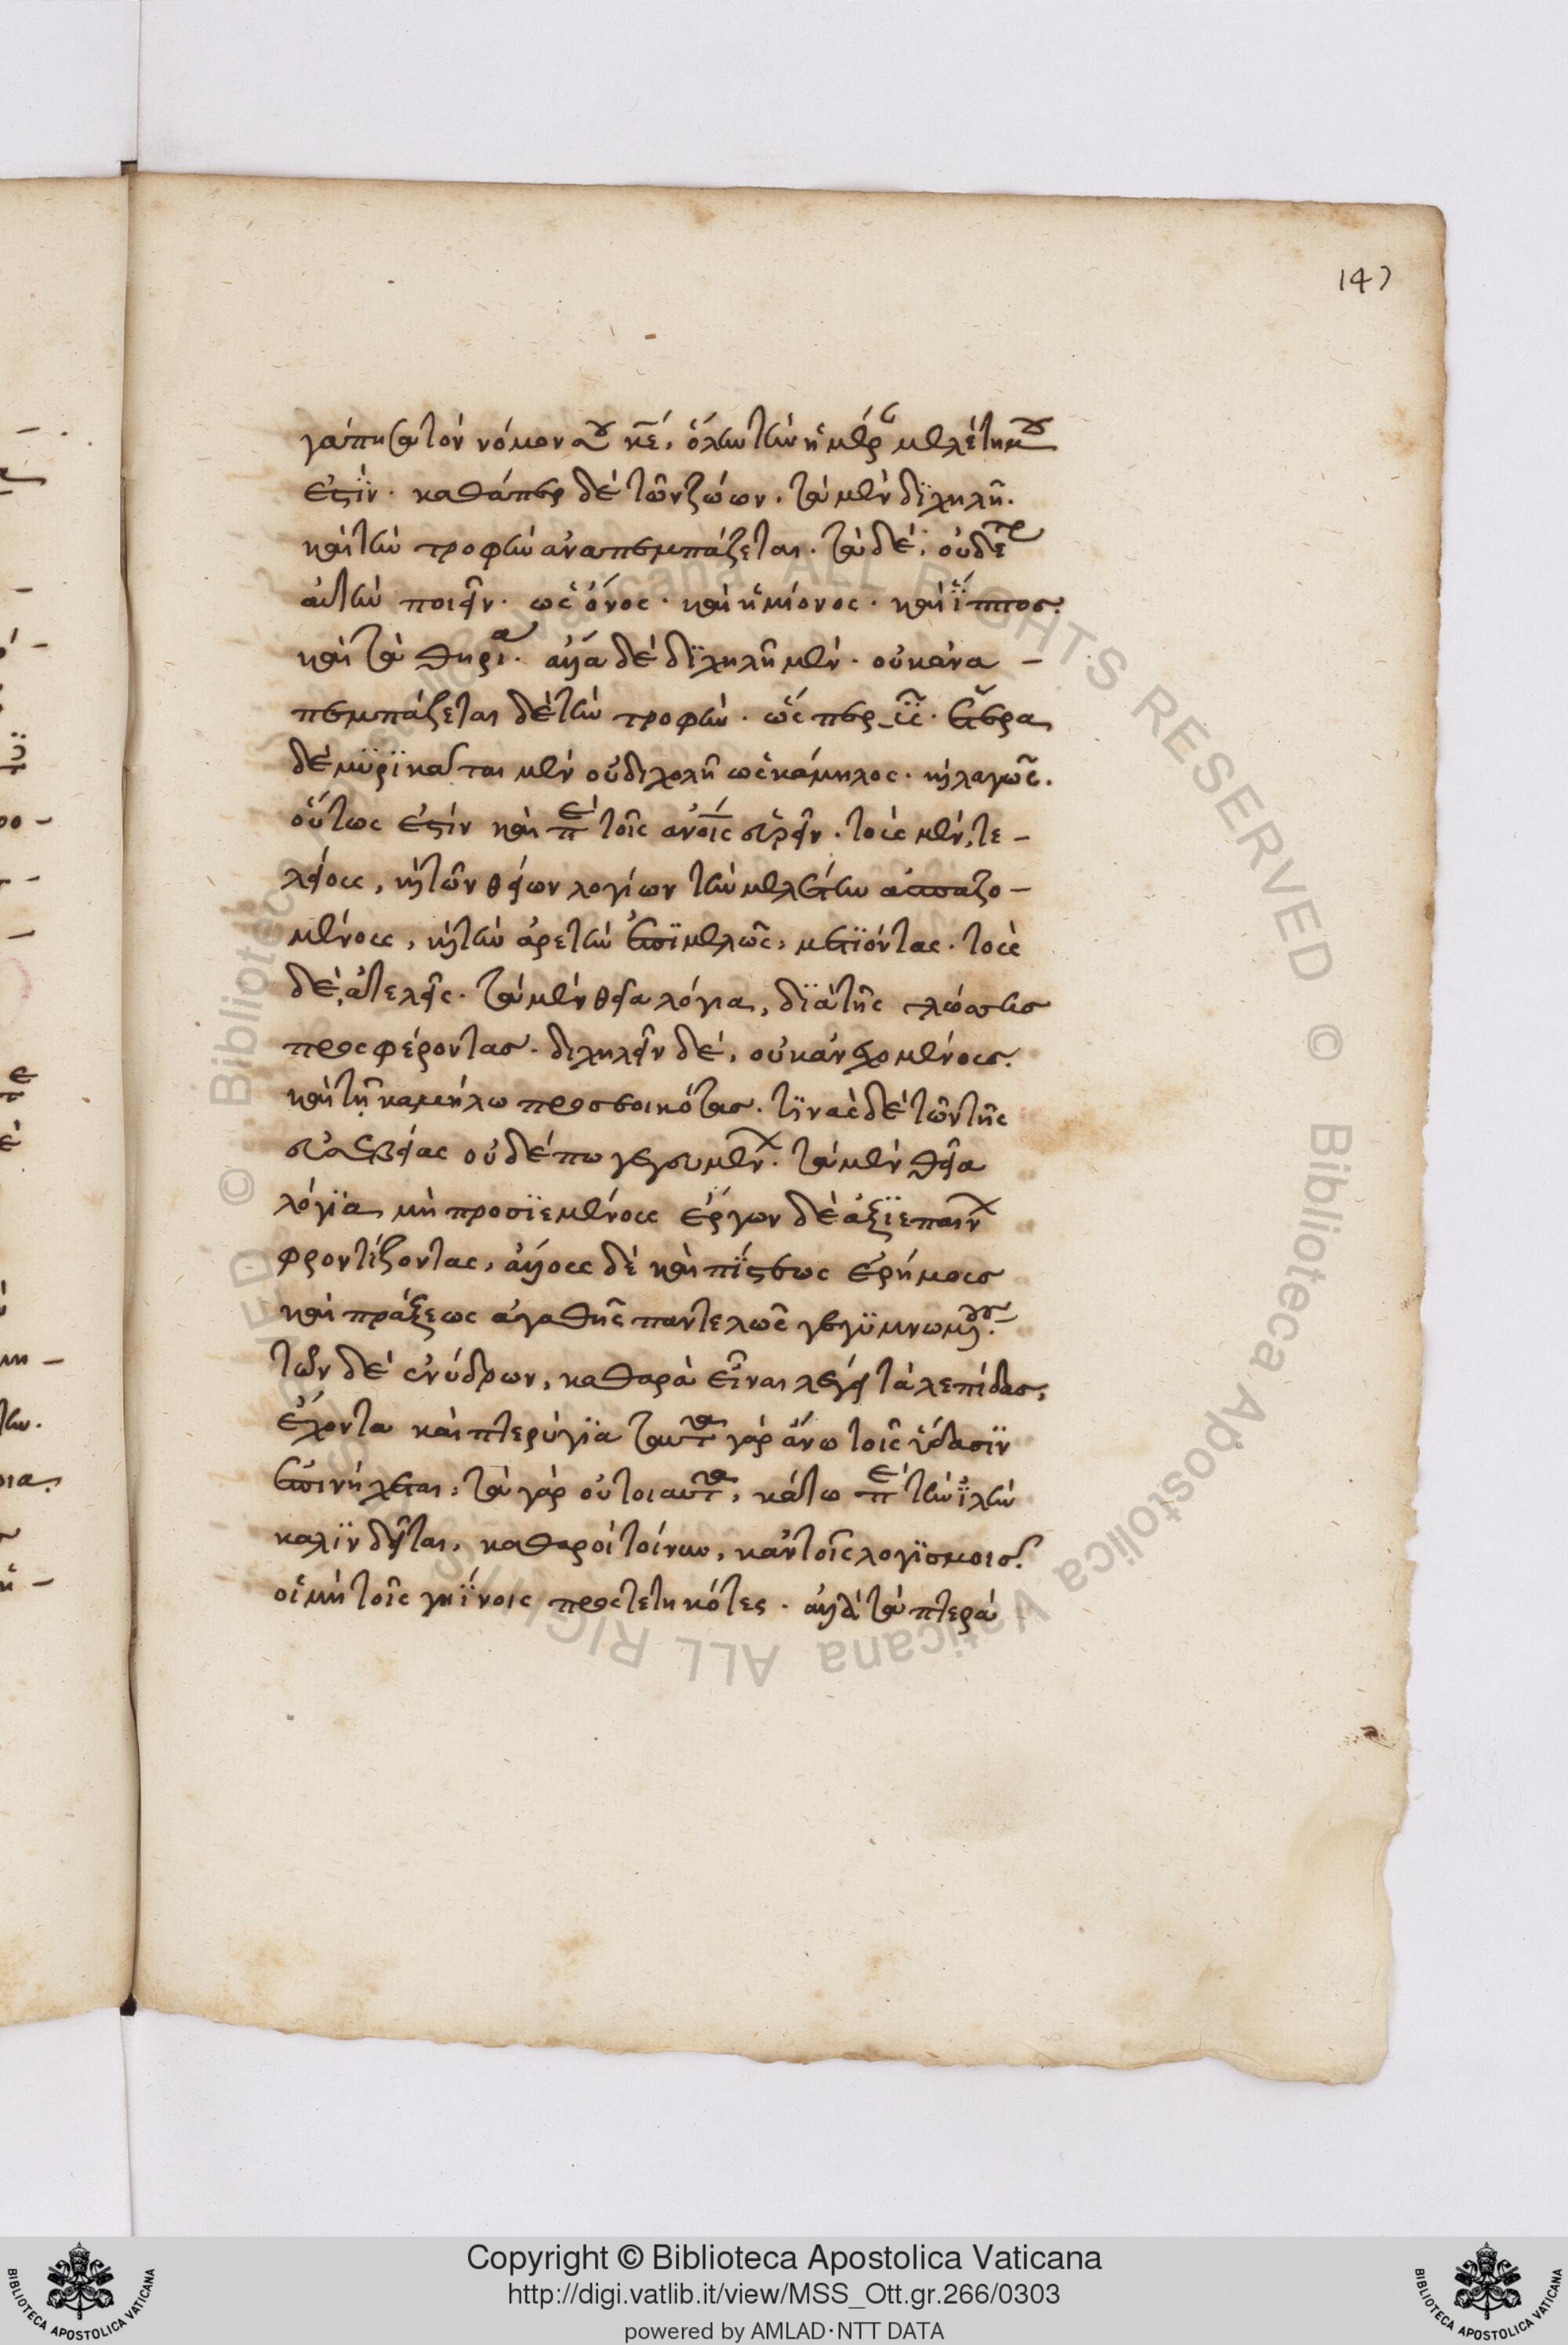 147
γάπησα τὸν νόμον σου κε, ὅλην τὴν ἡμέρ μελέτη μου
ἐστίν. καθάπερ δὲ τῶν ζώων. τὰ μὲν διχηλῆ.
καὶ τὴν τροφὴν ἀναπεμπάζεται. τὰ δὲ, οὐδέτρ
αὐτῶν ποιεῖν. ὡς ὄνος. καὶ ἡμίονος. καὶ ἵππος.
καὶ τὰ θηρία. ἄλλα δὲ διχηλῆ μὲν. οὐκ ἀνα –
πεμπάζεται δὲ τὴν τροφὴν. ὥσπερ. ἕτερα
δὲ μυρίκαται μὲν οὐ διχολῆ ὡς κάμηλος. καὶ λαγῶς.
οὕτως ἐστίν καὶ ἐπὶ τοῖς ἀνοις εὑρεῖν. τοὺς μὲν, τε –
λείους, καὶ τῶν θείων λογίων τὴν μελέτην ἀσπαζο –
μένους, καὶ τὴν ἀρετὴν ἐπιμελῶς, μετιόντας. τοὺς
δὲ, ἀτελεῖς. τὰ μὲν θεῖα λόγια, διὰ τῆς γλώσσης
προσφέροντας. διχηλεῖν δὲ, οὐκ ἀνεχομένους.
καὶ τῇ καμήλω προσεοικότας. τινὰς δὲ τῶν τῆς
εὐσεβείας οὐδέπω γεγευμένων. τὰ μὲν θεῖα
λόγια μὴ προσιεμένους ἔργων δὲ ἀξιεπαίνων
φροντίζοντας, ἄλλους δὲ καὶ πίστεως ἐρήμους
καὶ πράξεως ἀγαθῆς παντελῶς γεγυμνωμένους.
τῶν δὲ ἐνύδρων, καθαρὰ εἶναι λέγει τὰ λεπίδας,
ἔχοντα καὶ πτερύγια ταῦτα γὰρ ἄνω τοῖς ὕδασιν
ἐπινήχεται, τὰ γὰρ οὐ τοιαῦτα, κάτω ἐπὶ τὴν ἰλὺν
καλινδεῖται, καθαροὶ τοίνυν, κἀν τοῖς λογισμοῖς.
οἱ μὴ τοῖς γηΐνοις προστετηκότες. ἀλλὰ τὰ πτερὰ
Copyright © Biblioteca Apostolica Vaticana
http://digi.vatlib.it/view/MSS_Ott.gr.266/0303
powered by AMLAD·NTT DATA